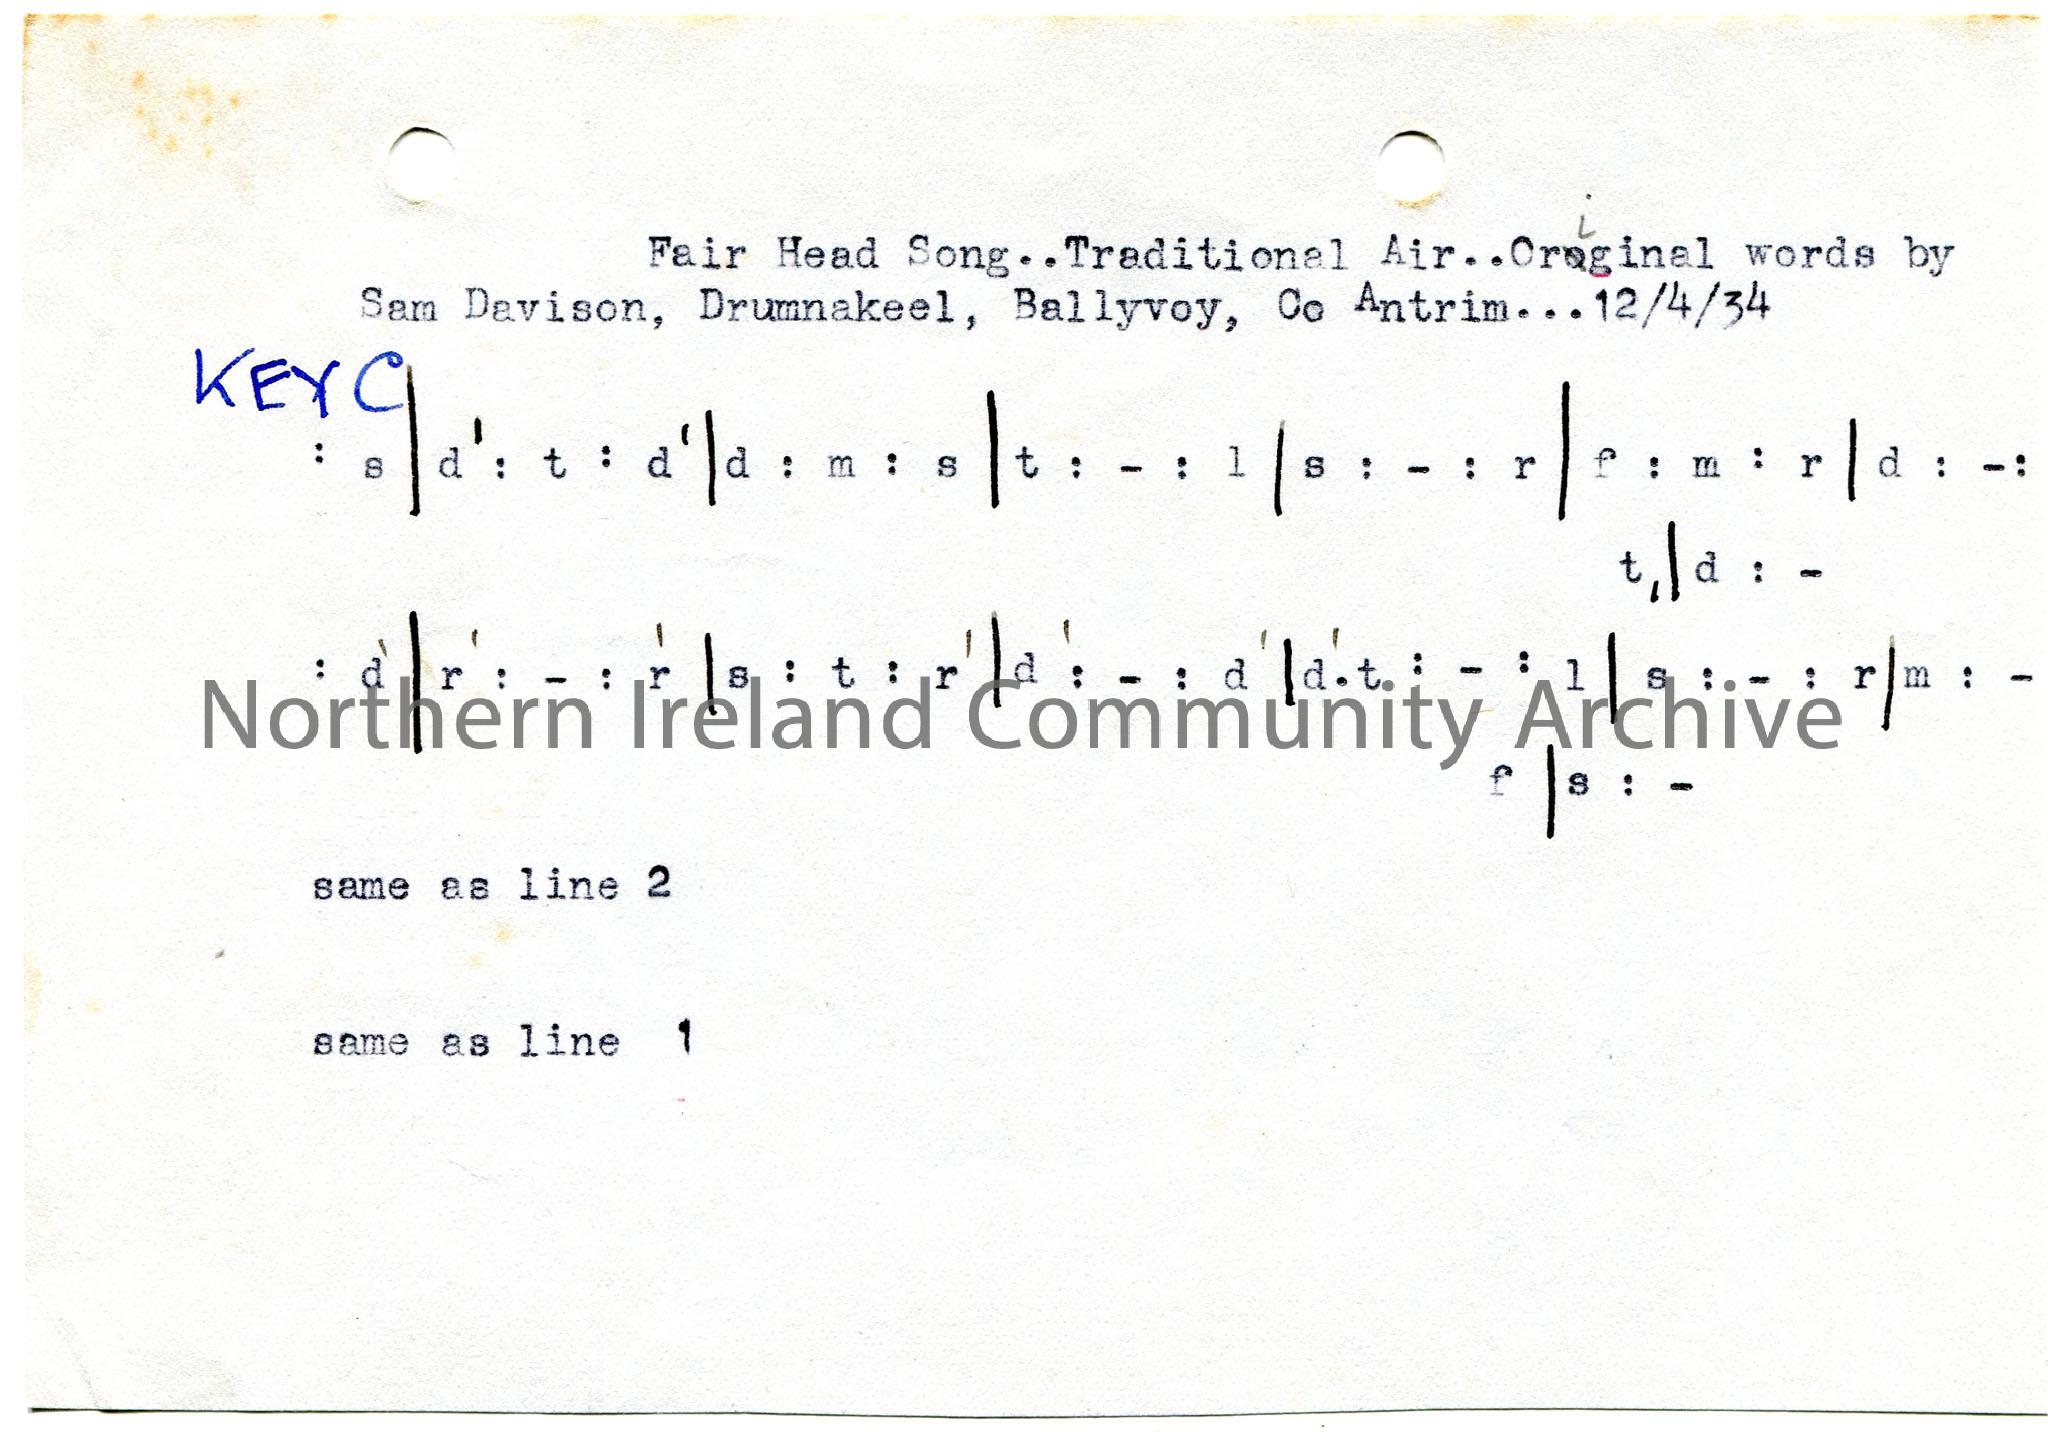 i
Fair Head Song..Traditional Air..Original words by
Sam Davison, Drumnakeel, Ballyvoy, Co Antrim...12/4/34
KEY C
: s | d' : t : d' | d : m : s | t : - : l | s : - : r | f : m : r | d : -:
t, | d : -
: d' | r' : - : r' | s : t : r' | d' : - : d' | d'.t : - : l | s : - : r | m : -
Northern Ireland Community Archive
f | s : -
same as line 2
same as line 1